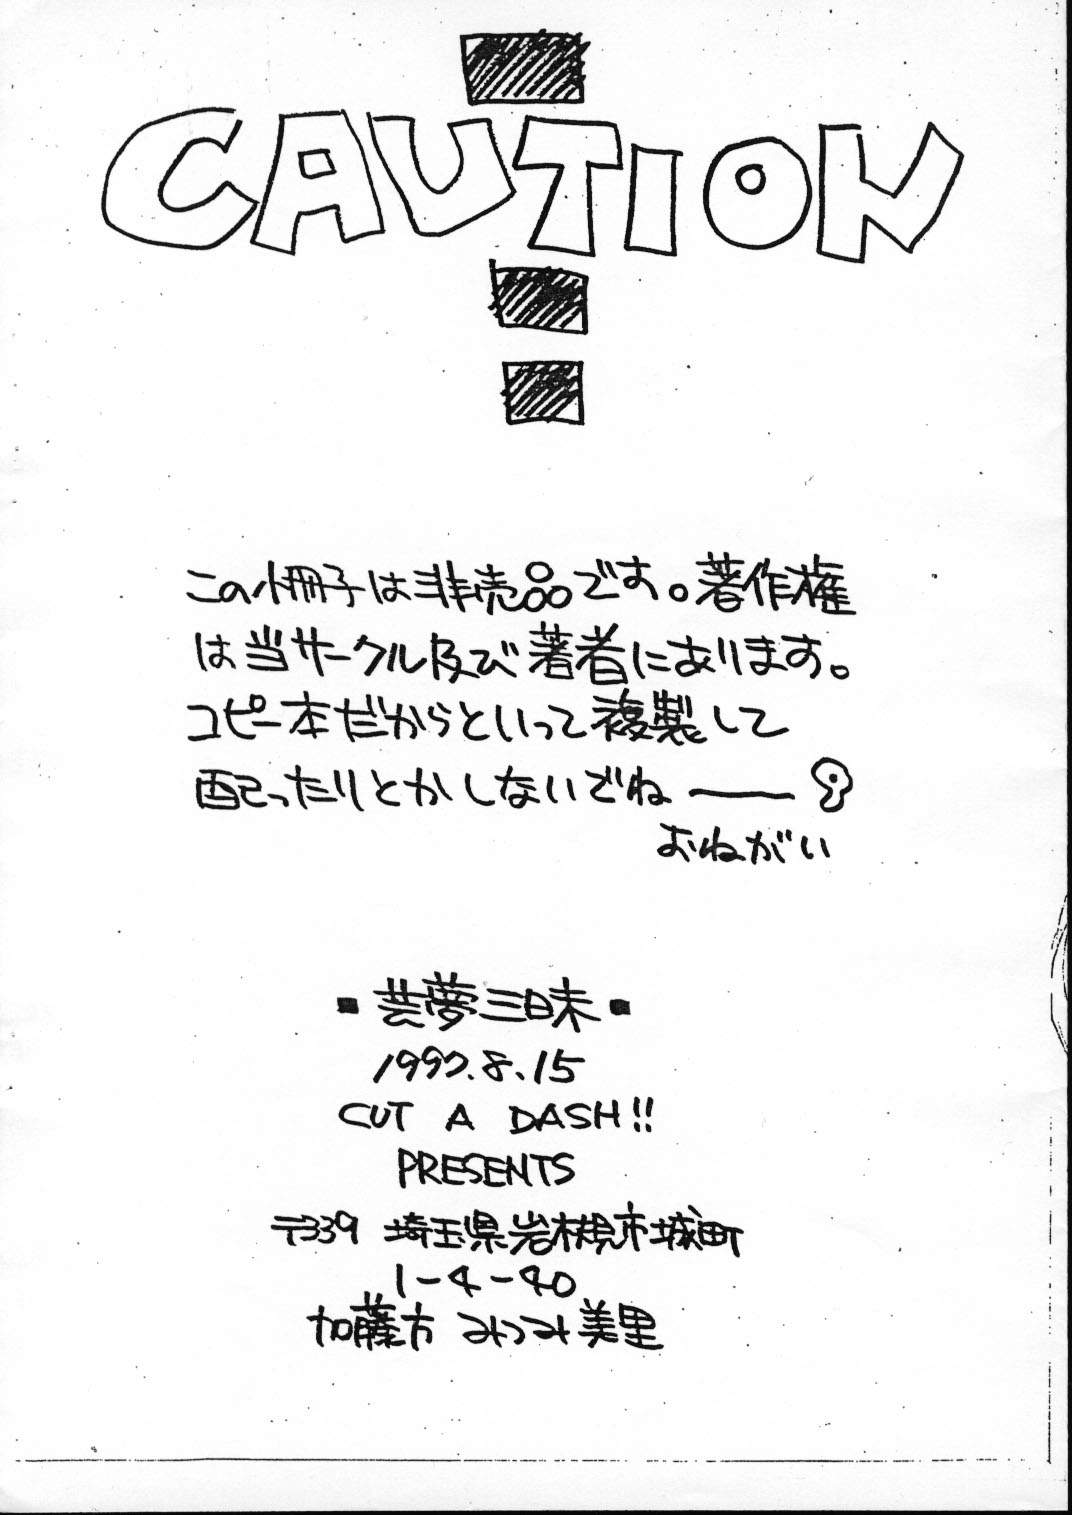 CAUTION
この小冊子は非売品です。著作権
は当サークル及び著者にあります。
コピー本だからといって複製して
配ったりとかしないでね——
おねがい
■芸夢三日末■
1997.8.15
CUT A DASH!!
PRESENTS
〒339 埼玉県岩槻市城町
1-4-40
加藤方 みつみ美里